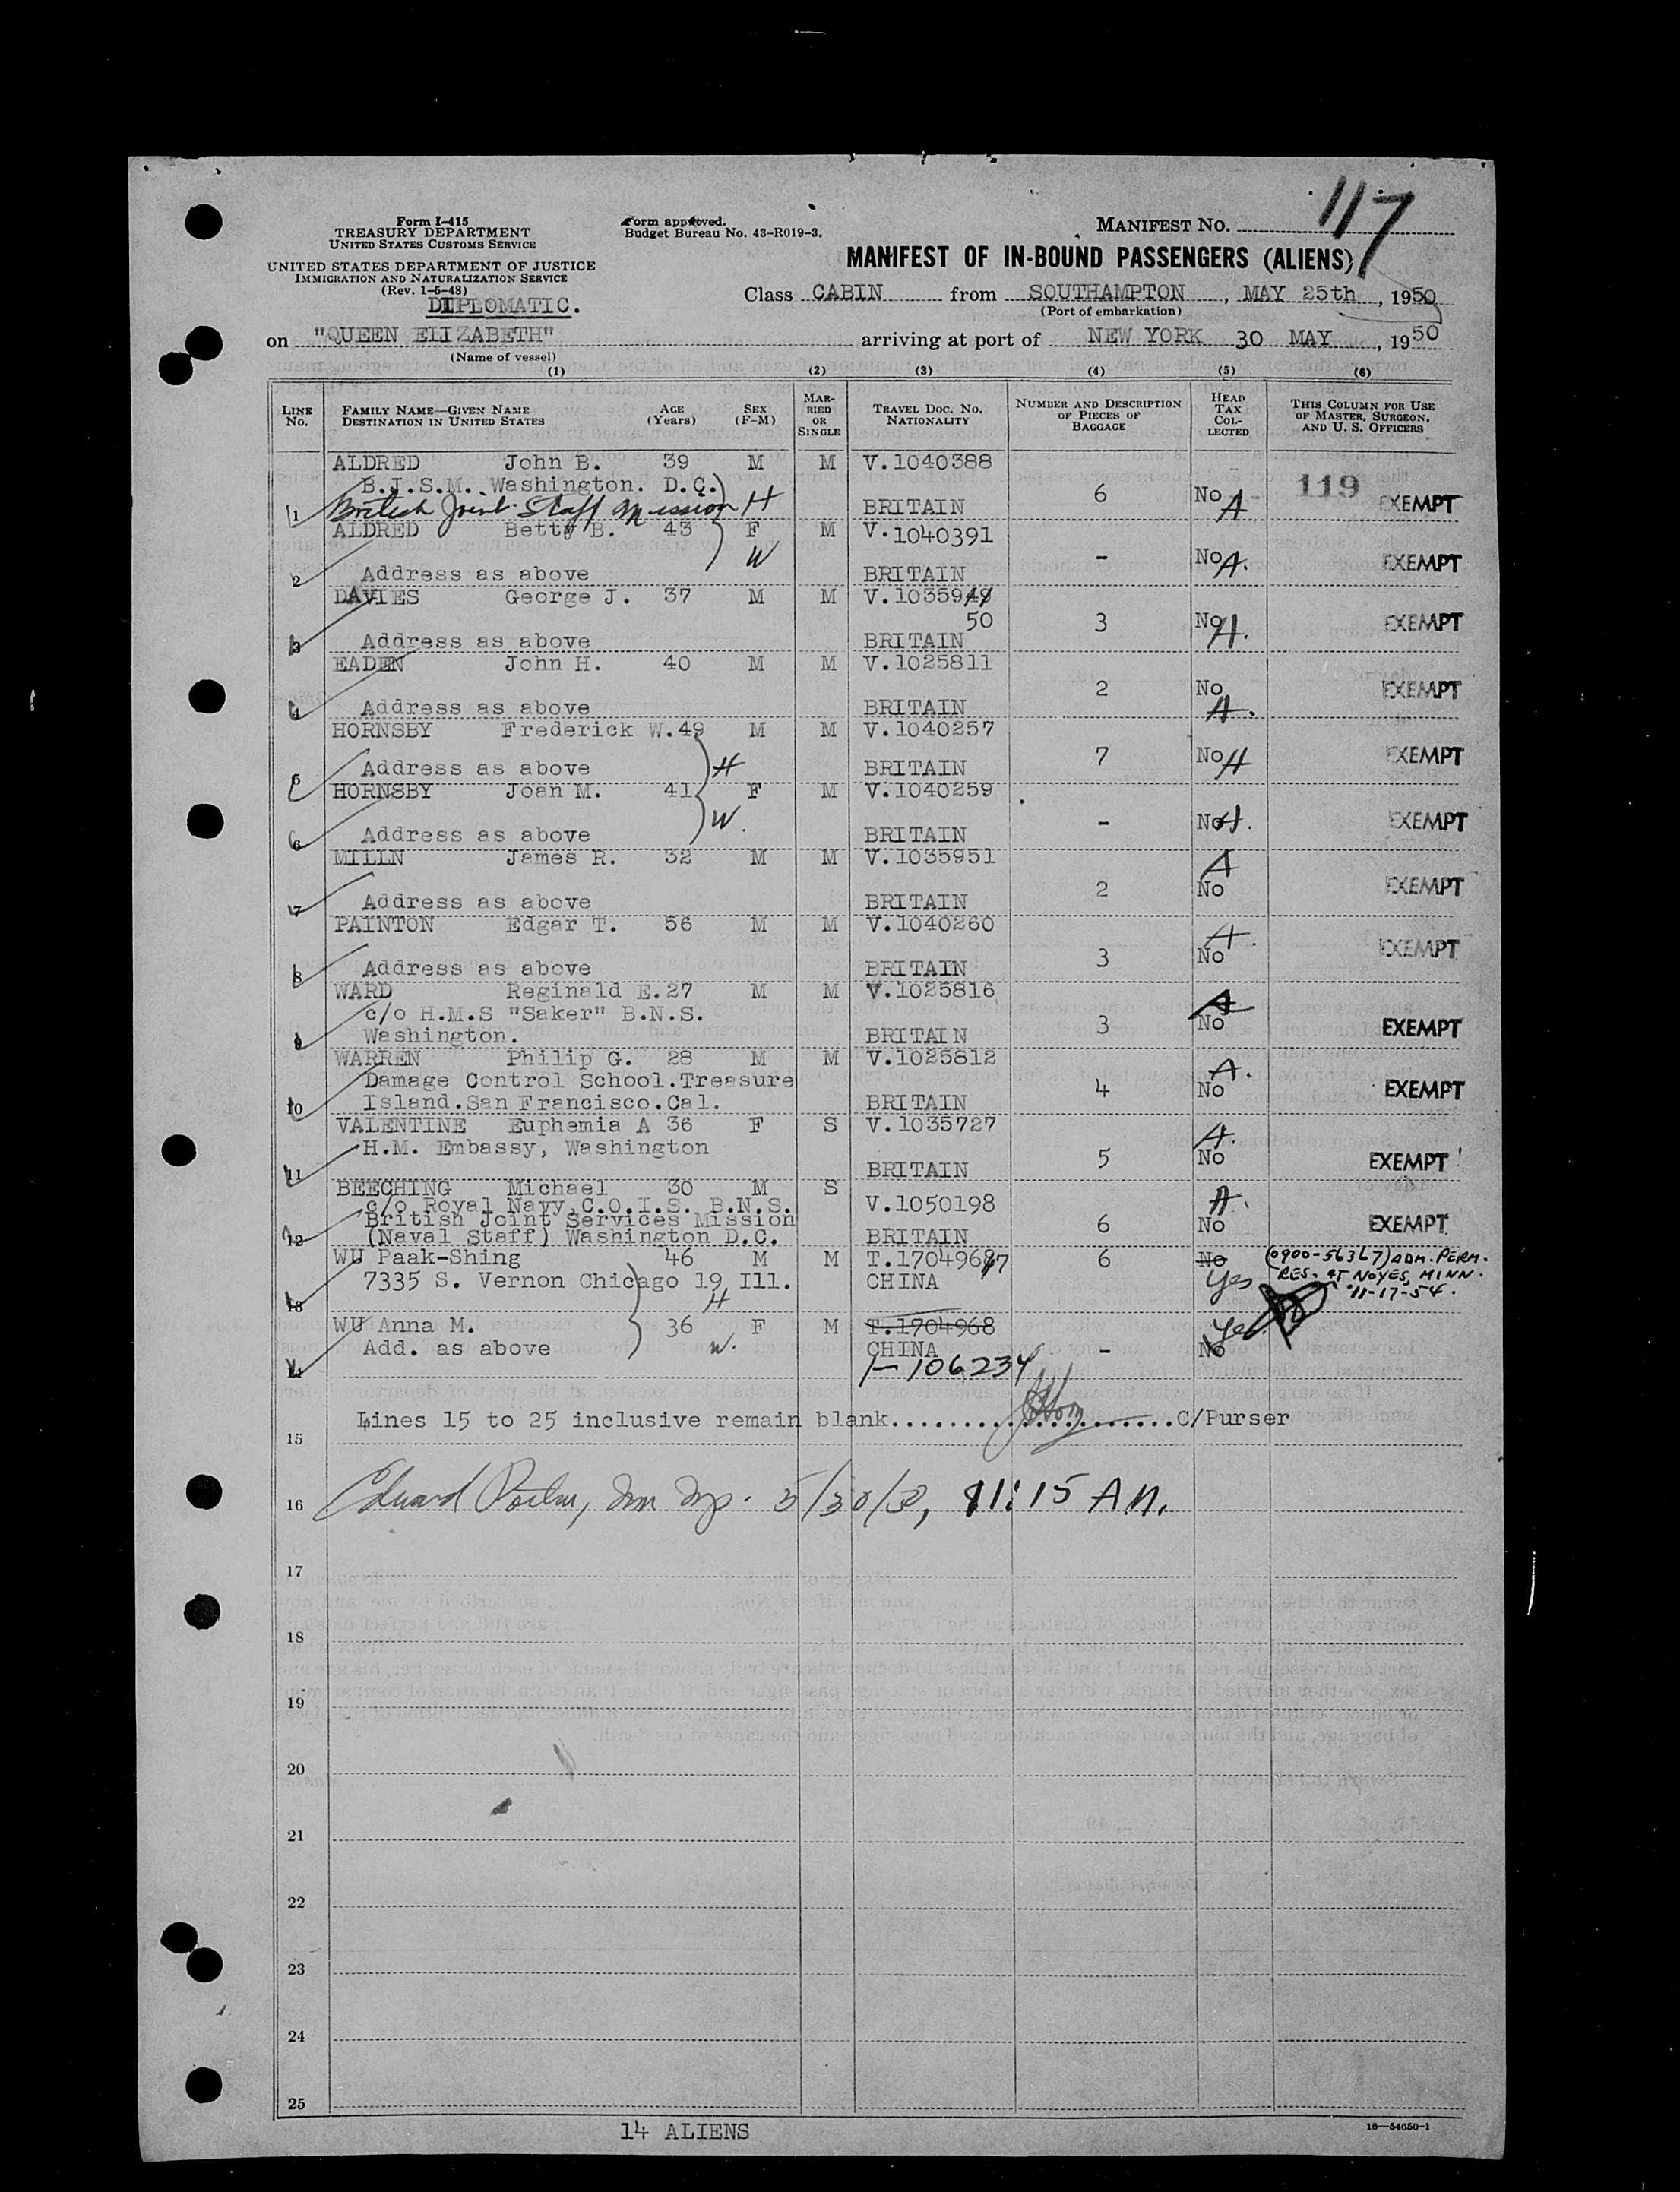 Form I-415
TREASURY DEPARTMENT
UNITED STATES CUSTOMS SERVICE
UNITED STATES DEPARTMENT OF JUSTICE
IMMIGRATION AND NATURALIZATION SERVICE
(Rev. 1-5-48)
DIPLOMATIC.
Form approved.
Budget Bureau No. 43-R019-3.
MANIFEST No. 117
MANIFEST OF IN-BOUND PASSENGERS (ALIENS)
Class CABIN from SOUTHAMPTON, MAY 25th, 1950
(Port of embarkation)
on "QUEEN ELIZABETH" arriving at port of NEW YORK 30 MAY, 1950
(Name of vessel)
(1) (2) (3) (4) (5) (6)
LINE No. FAMILY NAME—GIVEN NAME DESTINATION IN UNITED STATES AGE (Years) SEX (F-M) MARRIED OR SINGLE TRAVEL DOC. NO. NATIONALITY NUMBER AND DESCRIPTION OF PIECES OF BAGGAGE HEAD TAX COLLECTED THIS COLUMN FOR USE OF MASTER, SURGEON, AND U. S. OFFICERS
ALDRED John B. 39 M M V.1040388
B.J.S.M. Washington. D.C.
1 British Joint Staff Mission H BRITAIN 6 No A 119 EXEMPT
ALDRED Betty B. 43 F M V.1040391
W
2 Address as above BRITAIN - No A. EXEMPT
DAVIES George J. 37 M M V.1035948
50
3 Address as above BRITAIN 3 No A. EXEMPT
EADEN John H. 40 M M V.1025811
4 Address as above BRITAIN 2 No A. EXEMPT
HORNSBY Frederick W. 49 M M V.1040257
5 Address as above H BRITAIN 7 No A EXEMPT
HORNSBY Joan M. 41 F M V.1040259
6 Address as above W. BRITAIN - No A. EXEMPT
MILLN James R. 32 M M V.1035951
7 Address as above BRITAIN 2 A No EXEMPT
PAINTON Edgar T. 56 M M V.1040260
8 Address as above BRITAIN 3 A. No EXEMPT
WARD Reginald E. 27 M M V.1025816
c/o H.M.S "Saker" B.N.S.
9 Washington. BRITAIN 3 A No EXEMPT
WARREN Philip G. 28 M M V.1025812
Damage Control School.Treasure
10 Island.San Francisco.Cal. BRITAIN 4 A. No EXEMPT
VALENTINE Euphemia A 36 F S V.1035727
H.M. Embassy, Washington
11 BRITAIN 5 A. No EXEMPT
BEECHING Michael 30 M S
c/o Royal Navy,C.O.I.S. B.N.S. V.1050198
British Joint Services Mission
12 (Naval Staff) Washington D.C. BRITAIN 6 A. No EXEMPT
WU Paak-Shing 46 M M T.1704968 7 6 No (0900-56367) ADM. PERM.
7335 S. Vernon Chicago 19, Ill. CHINA Yes RES. AT NOYES, MINN.
13 H 11-17-54.
WU Anna M. 36 F M T.1704968 Yes
Add. as above W. CHINA - No
14 1-106234
Lines 15 to 25 inclusive remain blank.....................C/Purser
15
16 Edward 5/30/50, 11:15 AM.
17
18
19
20
21
22
23
24
25
14 ALIENS
16—54650-1